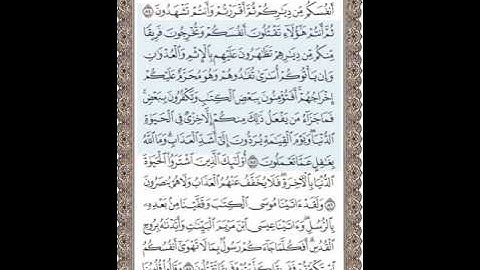 أَنفُسَكُم مِّن دِيَـٰرِكُمْ ثُمَّ أَقْرَرْتُمْ وَأَنتُمْ تَشْهَدُونَ ٨٤
ثُمَّ أَنتُمْ هَـٰٓؤُلَآءِ تَقْتُلُونَ أَنفُسَكُمْ وَتُخْرِجُونَ فَرِيقًا
مِّنكُم مِّن دِيَـٰرِهِمْ تَظَـٰهَرُونَ عَلَيْهِم بِٱلْإِثْمِ وَٱلْعُدْوَٰنِ
وَإِن يَأْتُوكُمْ أُسَـٰرَىٰ تُفَـٰدُوهُمْ وَهُوَ مُحَرَّمٌ عَلَيْكُمْ
إِخْرَاجُهُمْ ۚ أَفَتُؤْمِنُونَ بِبَعْضِ ٱلْكِتَـٰبِ وَتَكْفُرُونَ بِبَعْضٍ ۚ
فَمَا جَزَآءُ مَن يَفْعَلُ ذَٰلِكَ مِنكُمْ إِلَّا خِزْىٌ فِى ٱلْحَيَوٰةِ
ٱلدُّنْيَا ۖ وَيَوْمَ ٱلْقِيَـٰمَةِ يُرَدُّونَ إِلَىٰٓ أَشَدِّ ٱلْعَذَابِ ۗ وَمَا ٱللَّهُ
بِغَـٰفِلٍ عَمَّا تَعْمَلُونَ ٨٥ أُو۟لَـٰٓئِكَ ٱلَّذِينَ ٱشْتَرَوُا۟ ٱلْحَيَوٰةَ
ٱلدُّنْيَا بِٱلْـَٔاخِرَةِ ۖ فَلَا يُخَفَّفُ عَنْهُمُ ٱلْعَذَابُ وَلَا هُمْ يُنصَرُونَ
٨٦ وَلَقَدْ ءَاتَيْنَا مُوسَى ٱلْكِتَـٰبَ وَقَفَّيْنَا مِنۢ بَعْدِهِۦ
بِٱلرُّسُلِ ۖ وَءَاتَيْنَا عِيسَى ٱبْنَ مَرْيَمَ ٱلْبَيِّنَـٰتِ وَأَيَّدْنَـٰهُ بِرُوحِ
ٱلْقُدُسِ ۗ أَفَكُلَّمَا جَآءَكُمْ رَسُولٌۢ بِمَا لَا تَهْوَىٰٓ أَنفُسُكُمُ
ٱسْتَكْبَرْتُمْ فَفَرِيقًا كَذَّبْتُمْ وَفَرِيقًا تَقْتُلُونَ ٨٧ وَقَالُوا۟ قُلُوبُنَا